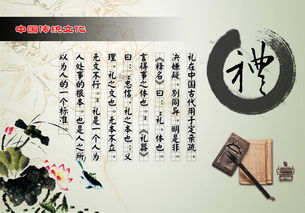 中国传统文化
禮
礼在中国古代用于定亲疏,
决嫌疑,别同异,明是非。
《释名》曰:“礼,体也。
言得事之体也。”《礼器》
曰:“忠信,礼之本也;义
理,礼之文也。无本不立,
无文不行。”礼是一个人为
人处事的根本。也是人之所
以为人的一个标准。